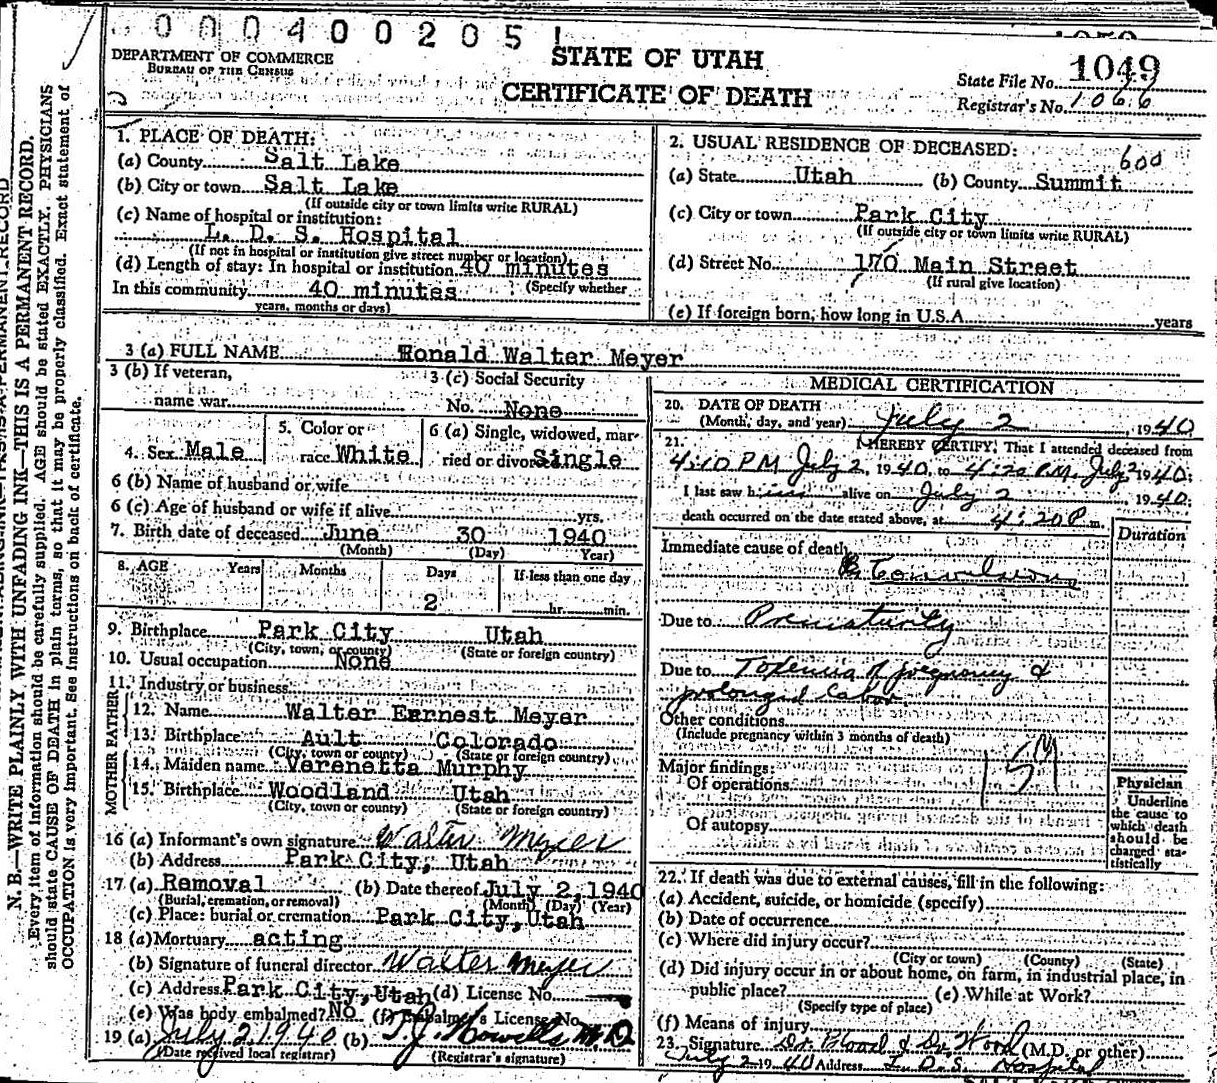 000400205
DEPARTMENT OF COMMERCE
BUREAU OF THE CENSUS
STATE OF UTAH
CERTIFICATE OF DEATH
State File No. 1049
Registrar's No. 1066
N. B.—WRITE PLAINLY WITH UNFADING INK—THIS IS A PERMANENT RECORD.
Every item of information should be carefully supplied. AGE should be stated EXACTLY. PHYSICIANS
should state CAUSE OF DEATH in plain terms, so that it may be properly classified. Exact statement of
OCCUPATION is very important. See instructions on back of certificate.
1. PLACE OF DEATH:
(a) County Salt Lake
(b) City or town Salt Lake
(If outside city or town limits write RURAL)
(c) Name of hospital or institution:
L. D. S. Hospital
(If not in hospital or institution give street number or location)
(d) Length of stay: In hospital or institution 40 minutes
In this community 40 minutes (Specify whether
years, months or days)
2. USUAL RESIDENCE OF DECEASED: 600
(a) State Utah (b) County Summit
(c) City or town Park City
(If outside city or town limits write RURAL)
(d) Street No. 170 Main Street
(If rural give location)
(e) If foreign born, how long in U.S.A. years
3 (a) FULL NAME Ronald Walter Meyer
3 (b) If veteran,
name war
3 (c) Social Security
No. None
4. Sex Male
5. Color or
race White
6 (a) Single, widowed, mar-
ried or divorced Single
6 (b) Name of husband or wife
6 (c) Age of husband or wife if alive yrs.
7. Birth date of deceased June 30 1940
(Month) (Day) Year)
8. AGE Years Months Days If less than one day
2 hr. min.
9. Birthplace Park City Utah
(City, town, or county) (State or foreign country)
10. Usual occupation None
11. Industry or business
FATHER
12. Name Walter Earnest Meyer
13. Birthplace Ault Colorado
(City, town or county) (State or foreign country)
MOTHER
14. Maiden name Verenetta Murphy
15. Birthplace Woodland Utah
(City, town or county) (State or foreign country)
16 (a) Informant's own signature Walter Meyer
(b) Address Park City, Utah
17 (a) Removal (b) Date thereof July 2, 1940
(Burial, cremation, or removal) (Month) (Day) (Year)
(c) Place: burial or cremation Park City, Utah
18 (a) Mortuary acting
(b) Signature of funeral director Walter Meyer
(c) Address Park City, Utah (d) License No.
(e) Was body embalmed? No (f) Embalmer's License No.
19 (a) July 2 1940 (b) T. J. Howells M.D.
(Date received local registrar) (Registrar's signature)
MEDICAL CERTIFICATION
20. DATE OF DEATH
(Month, day, and year) July 2, 1940
21. I HEREBY CERTIFY, That I attended deceased from
4:10 P.M. July 2, 1940, to 4:20 P.M. July 2 1940;
I last saw him alive on July 2, 1940;
death occurred on the date stated above, at 4:20 P m.
Duration
Immediate cause of death
Convulsions
Due to Prematurity
Due to Toxemia of pregnancy &
prolonged labor
Other conditions
(Include pregnancy within 3 months of death)
Major findings:
Of operations
Of autopsy
Physician
Underline
the cause to
which death
should be
charged sta-
tistically
22. If death was due to external causes, fill in the following:
(a) Accident, suicide, or homicide (specify)
(b) Date of occurrence
(c) Where did injury occur?
(City or town) (County) (State)
(d) Did injury occur in or about home, on farm, in industrial place, in
public place? (e) While at Work?
(Specify type of place)
(f) Means of injury
23. Signature Dr. Blood & Dr. Wood (M.D. or other)
July 2 1940 Address L. D. S. Hospital